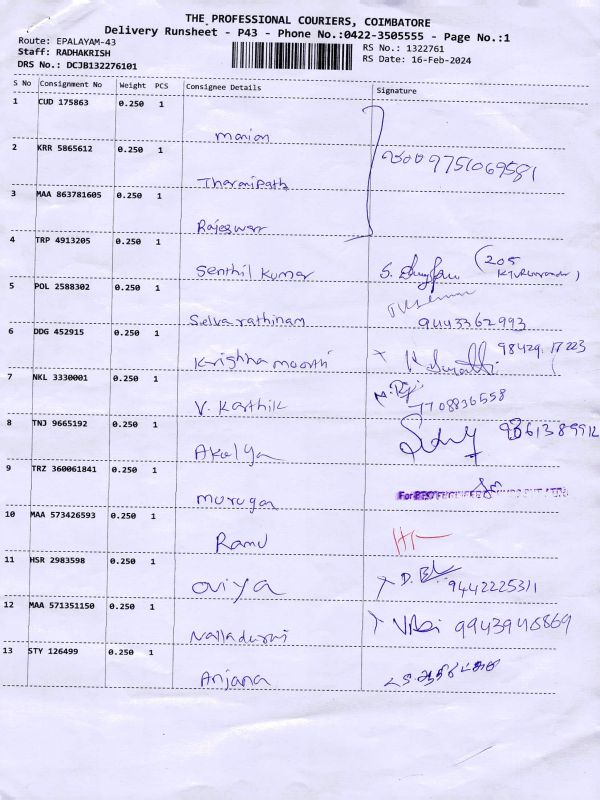 THE PROFESSIONAL COURIERS, COIMBATORE
Delivery Runsheet - P43 - Phone No.:0422-3505555 - Page No.:1
Route: EPALAYAM-43
RS No.: 1322761
Staff: RADHAKRISH
RS Date: 16-Feb-2024
DRS No.: DCJB132276101
S No Consignment No Weight PCS Consignee Details Signature
1 CUD 175863 0.250 1
manian
2 KRR 5865612 0.250 1
9751069581
Tharanipath
3 MAA 863781605 0.250 1
Rajeswari
4 TRP 4913205 0.250 1
Senthil Kumar S. (205
5 POL 2588302 0.250 1
Selvarathinam 9443362993
6 DDG 452915 0.250 1
Krishna moorthi 98429 17223
7 NKL 3330001 0.250 1
V. Karthik 7708836558
8 TNJ 9665192 0.250 1
Akalya 9361389912
9 TRZ 360061841 0.250 1
Murugan For
10 MAA 573426593 0.250 1
Ramu
11 HSR 2983598 0.250 1
Oviya 9442225311
12 MAA 571351150 0.250 1
Nalladurai 9943946869
13 STY 126499 0.250 1
Anjana